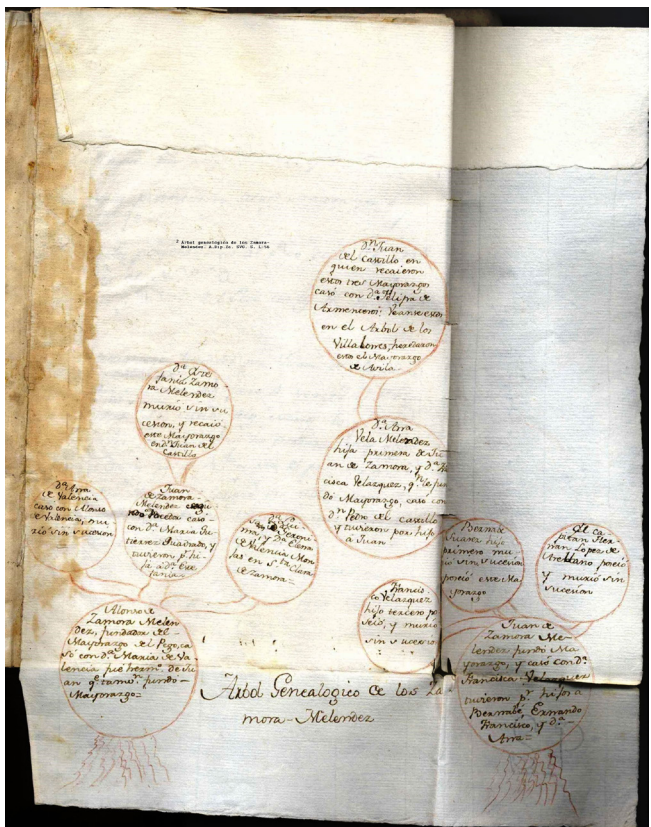 2 Arbol genealógico de los Zamora-
Melendez. A.Hip.Za.
Dn. Juan
del castillo en
quien recaieron
estos tres Mayorazgos
casó con Da. Felipa de
Armenteros: Veanse estos
en el Arbol de los
Villaloves, heredaron
estos el Mayorazgo
de Avila-
Da. Ana
Vela Melendez
hija primera de Ju
an de Zamora, y Da.
cisca Velazquez,
dó Mayorazgo, casó con
Dn. Pedro del castillo
y tuvieron por hijo
á Juan
Da.
fania Zamo
ra Melendez
murió sin su
cesion, y recaió
este Mayorazgo
en Dn. Juan del
Castillo
Da. Ana
de Valencia
caso con Alonso
de Valencia, mu
rió sin sucesion
Juan
de Zamora-
Melendez
caso-
con Da. Maria Gu
tierrez Quadrado, y
tuvieron pr. hi
fania-
y Da. Elena
de Valencia Mon
jas en Sta. Clara
de Zamora-
Bernabe
Suarez hijo
primero mu
rió sin sucesion
poseió este Ma
yorazgo
El ca
pitan Her
nan Lopez de
Arellano poseió
y murió sin
sucesion
Francis
co Velazquez
hijo tercero po
seió, y murió
sin sucesion
Alonso de
Zamora Melen
dez, fundador del
Mayorazgo del Pego, ca
só con Da. Maria de Va-
lencia fue hermo. de Ju
an qe. tamn. fundó-
Mayorazgo-
Juan de
Zamora Me-
lendez fundó Ma
yorazgo, y casó con Da.
Francisca Velazquez
tuvieron pr. hijos a
Bernabé, Ernando
Francisco, y Da.
Ana-
Arbol Genealogico de los Za
mora-Melendez